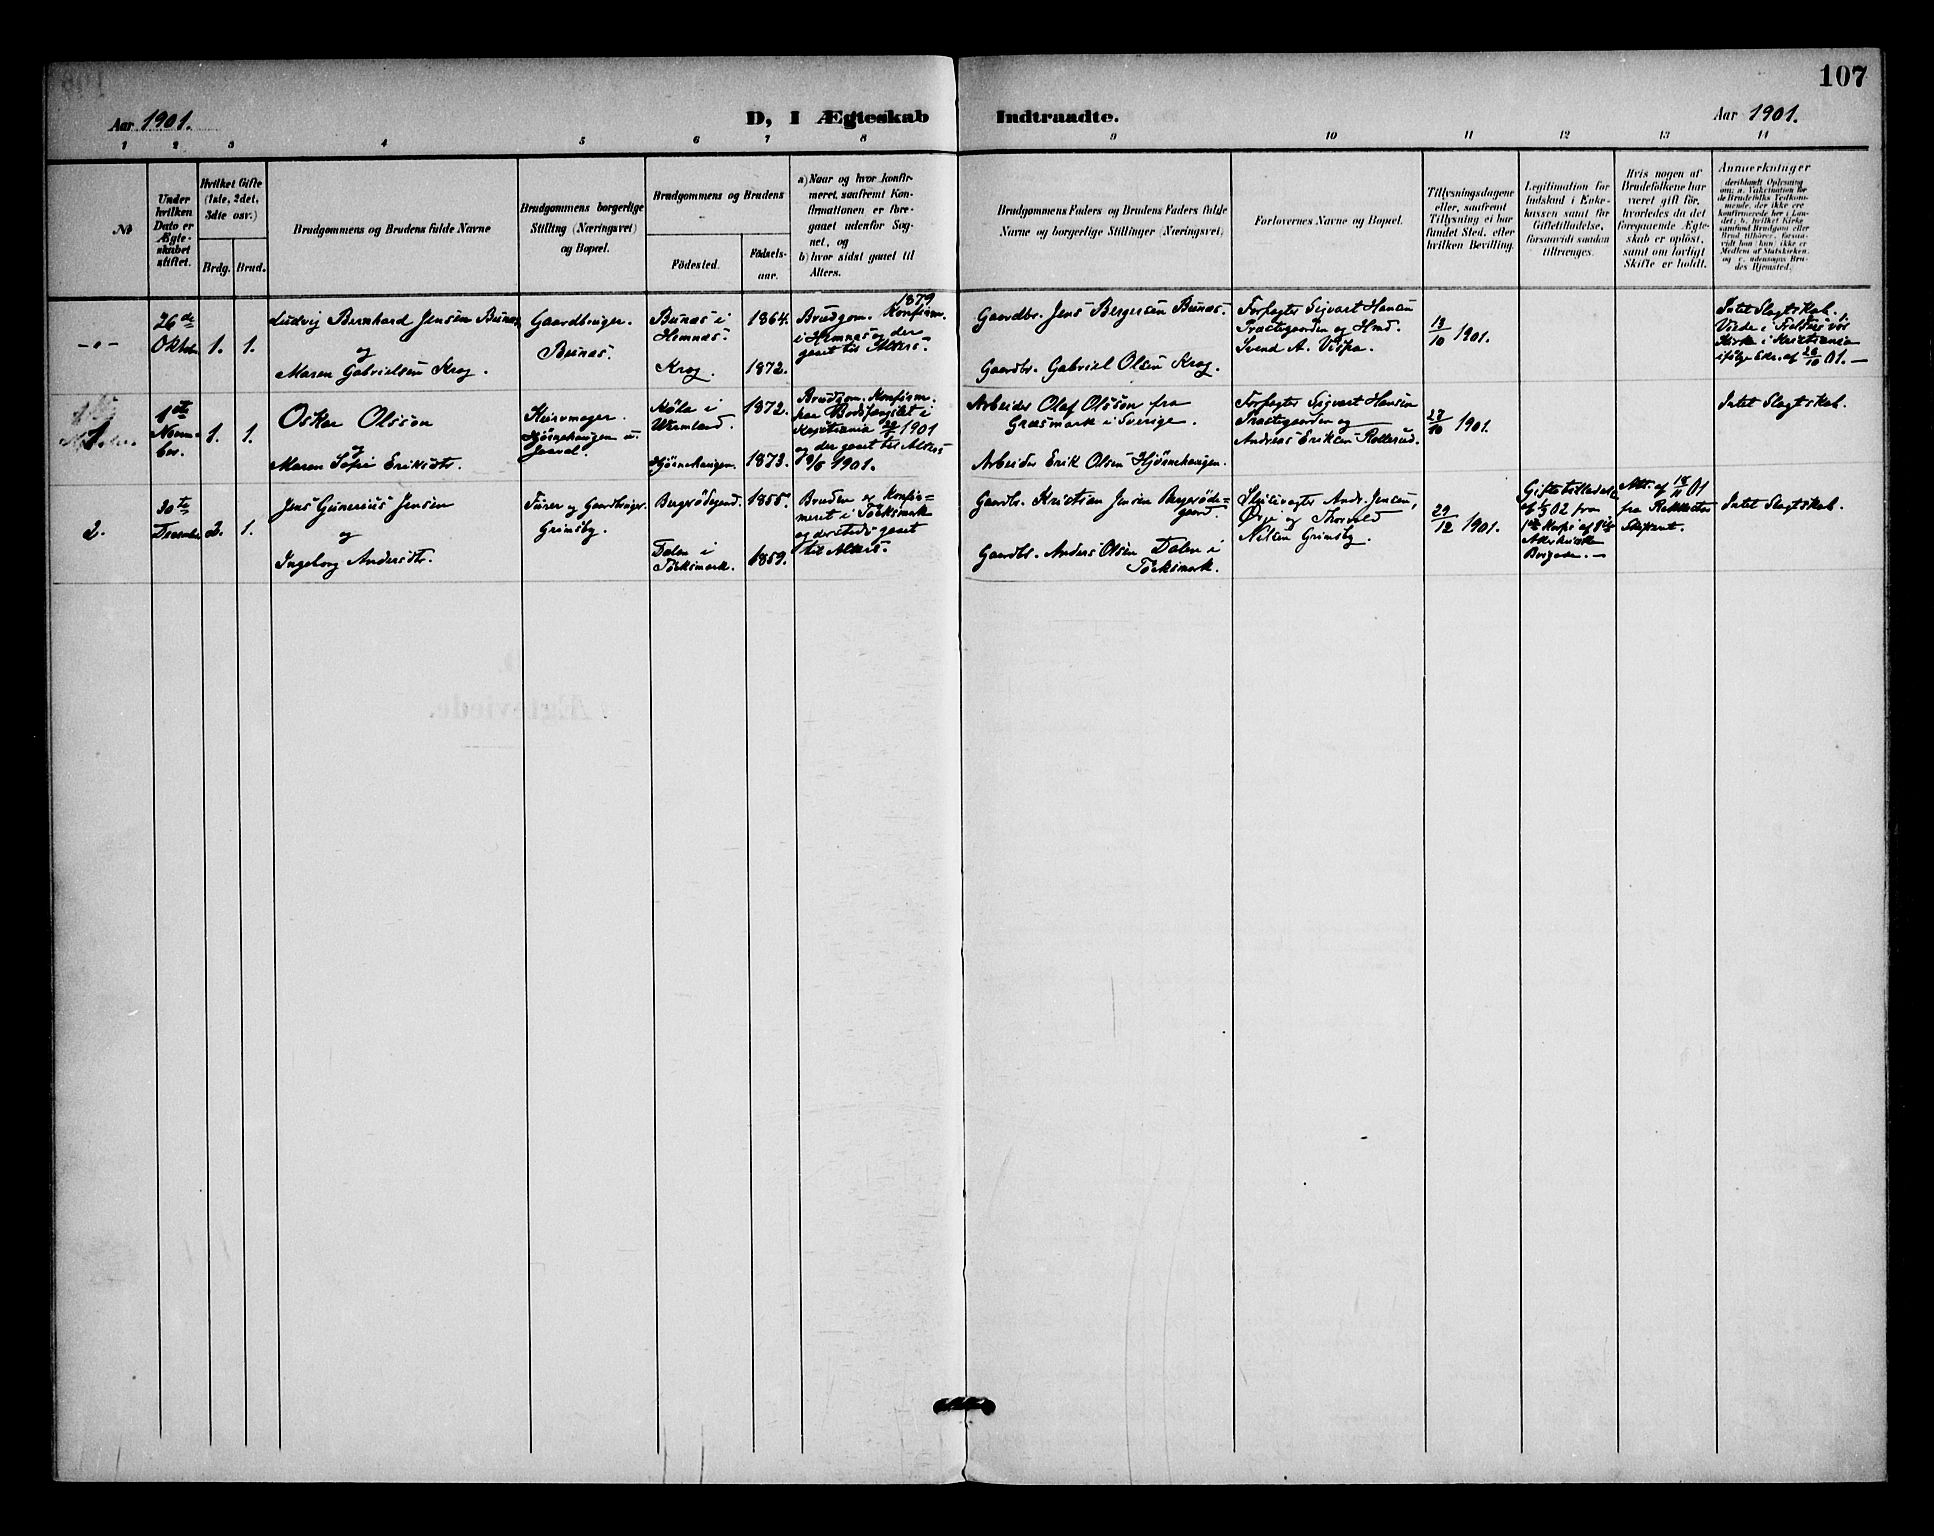 107
Aar 1901. D, I Ægteskab Indtraadte. Aar 1901.
1 2 3 4 5 6 7 8 9 10 11 12 13 14
№
Under hvilken Dato er Ægteskabet stiftet.
Hvilket Gifte (1ste, 2det, 3die osv.)
Brdg. Brud.
Brudgommens og Brudens fulde Navne
Brudgommens borgerlige Stilling (Næringsvei) og Bopæl.
Brudgommens og Brudens
Fødested. Fødselsaar.
a) Naar og hvor konfirmeret, saafremt Konfirmationen er foregaaet udenfor Sognet, og
b) hvor sidst gaaet til Alters.
Brudgommens Faders og Brudens Faders fulde Navne og borgerlige Stillinger (Næringsvei)
Forlovernes Navne og Bopæl.
Tillysningsdagene eller, saafremt Tillysning ei har fundet Sted, efter hvilken Bevilling.
Legitimation for Indskud i Enkekassen samt for Giftetilladelse, forsaavidt saadan tiltrænges.
Hvis nogen af Brudefolkene har været gift før, hvorledes da det foregaaende Ægteskab er opløst, samt om lovligt Skifte er holdt.
Anmerkninger
deriblandt Oplysning om: a. Vakcination for de Brudefolks Vedkommende, der ikke ere konfirmerede her i Landet; b. hvilket Kirkesamfund Brudgom eller Brud tilhører, forsaavidt han (hun) ikke er Medlem af Statskirken, og c. udensogns Brudes Hjemsted.
-"-
26de Oktober
1. 1.
Ludvig Bernhard Jensen Bunæs
og
Maren Gabrielsen Krog.
Gaardbruger.
Bunæs.
Bunæs i
Hemnæs.
Krog.
1864.
1872.
1879
Brudgom. Konfirm.
i Hemnæs og der
gaaet til Alters.
Gaardbr. Jens Bergersen Bunæs.
Gaardbr. Gabriel Olsen Krog.
Forpagter Sigvart Hansen
Præstegaarden og Hmd.
Svend A. Vispa.
13/10 1901.
Intet Slagtskab.
Viede i Frelsers
Kirke i Kristiania
ifølge Skr. af 26/10 01.-
1.
1ste
November
1. 1.
Oskar Olsson
og
Maren Sofie Eriksdtr.
Kurvmager.
Hjørnehaugen u.
Jaaval.
Köla i
Wermland.
Hjørnehaugen.
1872.
1873.
Brudgom. Konfirm.
Bodsfængslet i
Kristiania 1901
og der gaaet til Alters
1901.
Arbeider Olaf Olsson fra
Græsmark i Sverige.
Arbeider Erik Olsen Hjørnehaugen.
Forpagter Sigvart Hansen
Præstegaarden og
Andreas Eriksen Rollerud.
27/10 1901.
Intet Slagtskab.
2.
30te
December
2. 1.
Jens Gunerius Jensen
og
Ingeborg Andersdtr.
Furer og Gaardbruger.
Grimsby.
Bergerødegaard.
Dalen i
Töcksmark.
1855.
1859.
Bruden er Konfirmeret i Töcksmark
og dersteds gaaet
til Alters.
Gaardbr. Kristian Jensen Bergerødegaard.
Gaardbr. Anders Olsen Dalen i
Töcksmark.
And. Jensen,
Øye og Thorvald
Nilsen Grimsby.
29/12 1901.
Giftetilladelse
af 02 fra
Korps af
Akershusiske
Brigade.-
Att. af 18/11 01
fra Rakkestad
Skifteret.
Intet Slagtskab.